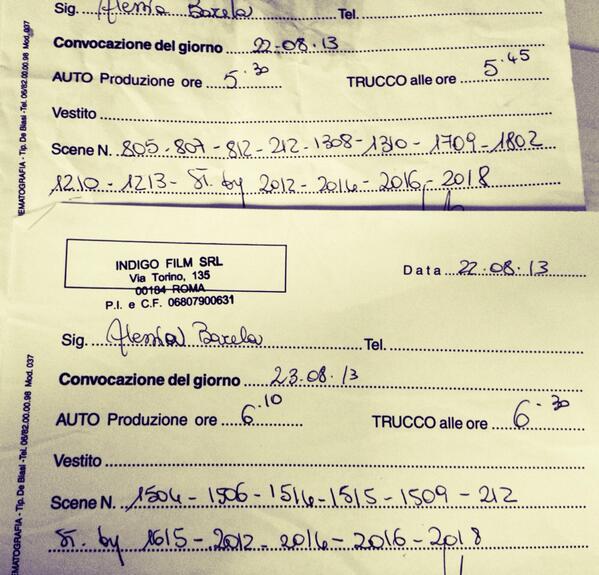 Sig. Alessia Barela Tel.
Convocazione del giorno 22-08.13
AUTO Produzione ore 5.30 TRUCCO alle ore 5.45
Vestito
Scene N. 805-807-812-212-1308-1310-1709-1802
1210-1213-St. by 2012-2014-2016-2018
EMATOGRAFIA - Tip. De Blasi - Tel. 06/82.00.00.98 Mod. 037
INDIGO FILM SRL
Via Torino, 135
00184 ROMA
P.I. e C.F. 06807900631
Data 22.08.13
Sig. Alessia Barela Tel.
Convocazione del giorno 23.08.13
AUTO Produzione ore 6.10 TRUCCO alle ore 6.30
Vestito
Scene N. 1504-1506-1514-1515-1509-212
St. by 1615-2012-2014-2016-2018
EMATOGRAFIA - Tip. De Blasi - Tel. 06/82.00.00.98 Mod. 037